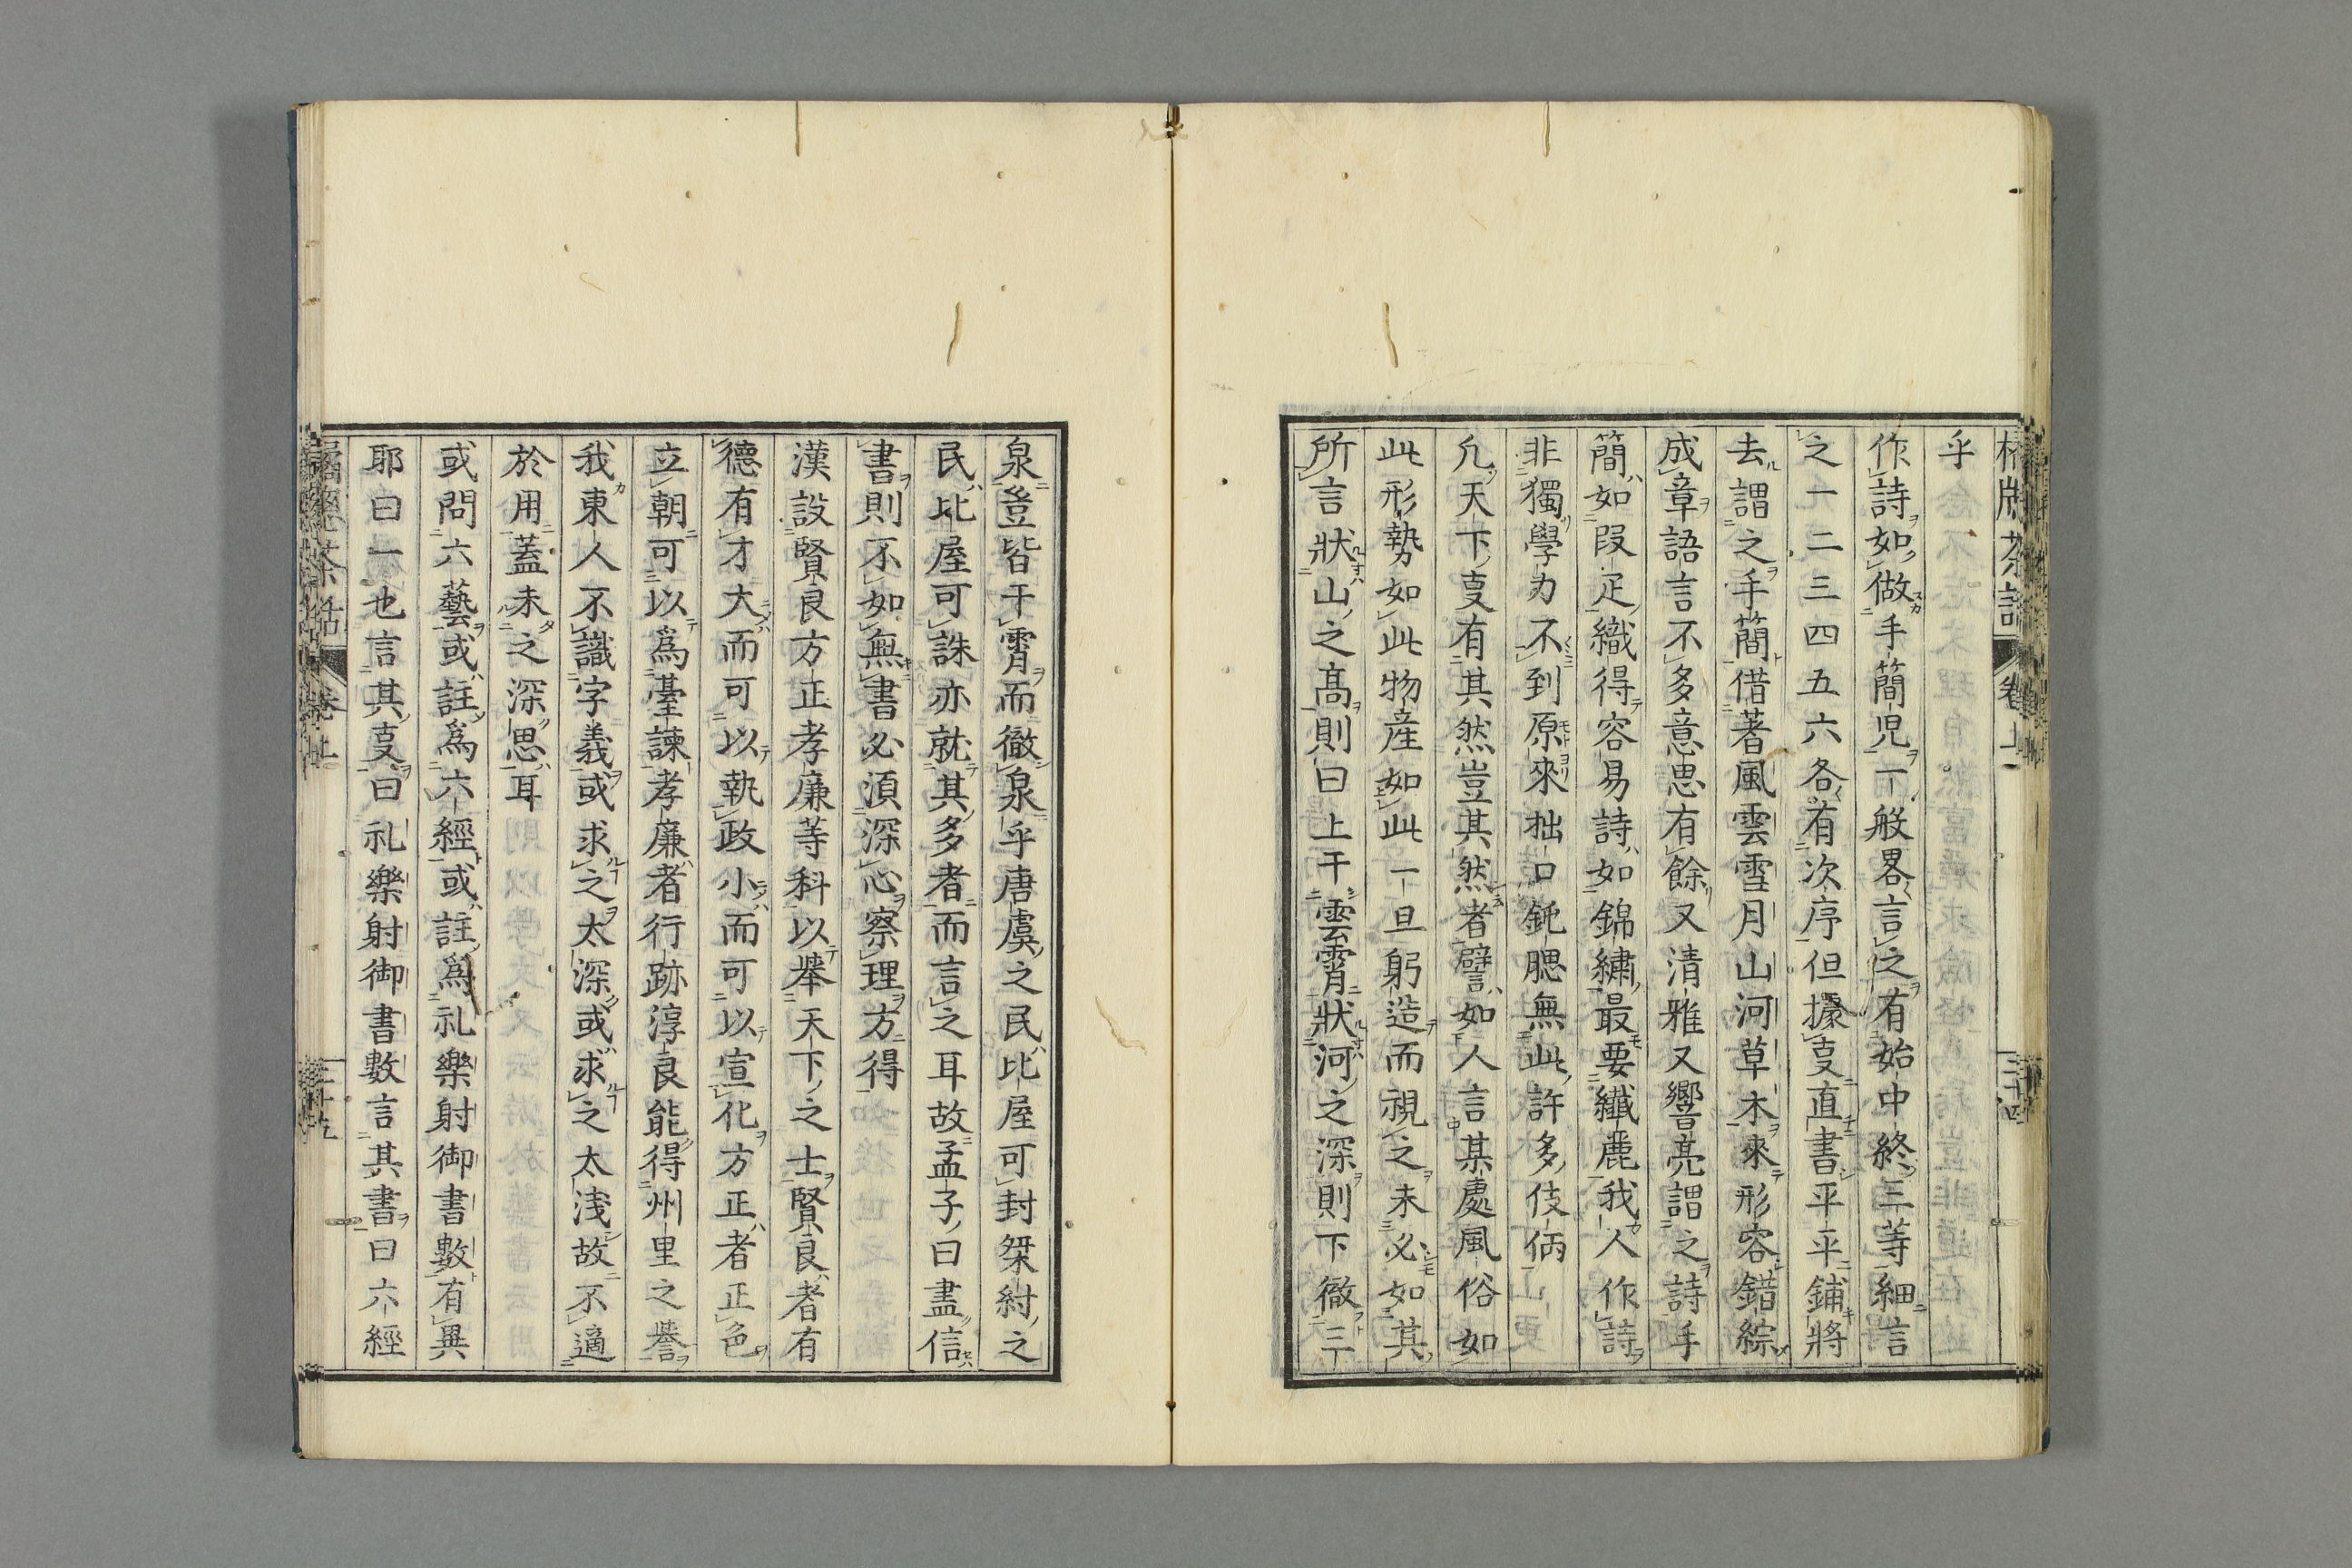 乎
作詩如做手簡児一般畧言之有始中終三等細言
之一二三四五六各有次序但據叓直書平平鋪將
去謂之手簡借著風雲雪月山河草木來形容錯綜
成章語言不多意思有餘又清雅又響亮謂之詩手
簡如叚疋織得容易詩如錦繡最要纖麗我人作詩
非獨學力不到原來拙口鈍腮無此許多伎倆
凢天下叓有其然豈其然者譬如人言某處風俗如
此形勢如此物産如此一旦躬造而視之未必如其
所言狀山之高則曰上干雲霄狀河之深則下徹三
泉豈皆干霄而徹泉乎唐虞之民比屋可封桀紂之
民比屋可誅亦就其多者而言之耳故孟子曰盡信
書則不如無書必須深心察理方得
漢設賢良方正孝廉等科以舉天下之士賢良者有
德有才大而可以執政小而可以宣化方正者正色
立朝可以爲臺諫孝廉者行跡淳良能得州里之譽
我東人不識字義或求之太深或求之太浅故不適
於用蓋未之深思耳
或問六藝或註爲六經或註爲礼樂射御書數有異
耶曰一也言其叓曰礼樂射御書數言其書曰六經
茶話 卷上